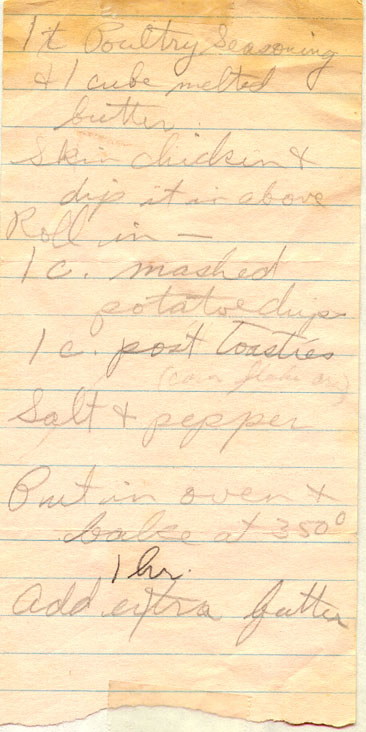 1 t Poultry Seasoning
& 1 cube melted
butter.
Skin chicken &
dip it in above
Roll in —
1 c. mashed
potatoe chips
1 c. post toasties
(corn flake
Salt & pepper
Put in oven &
bake at 350°
1 hr.
add extra butter